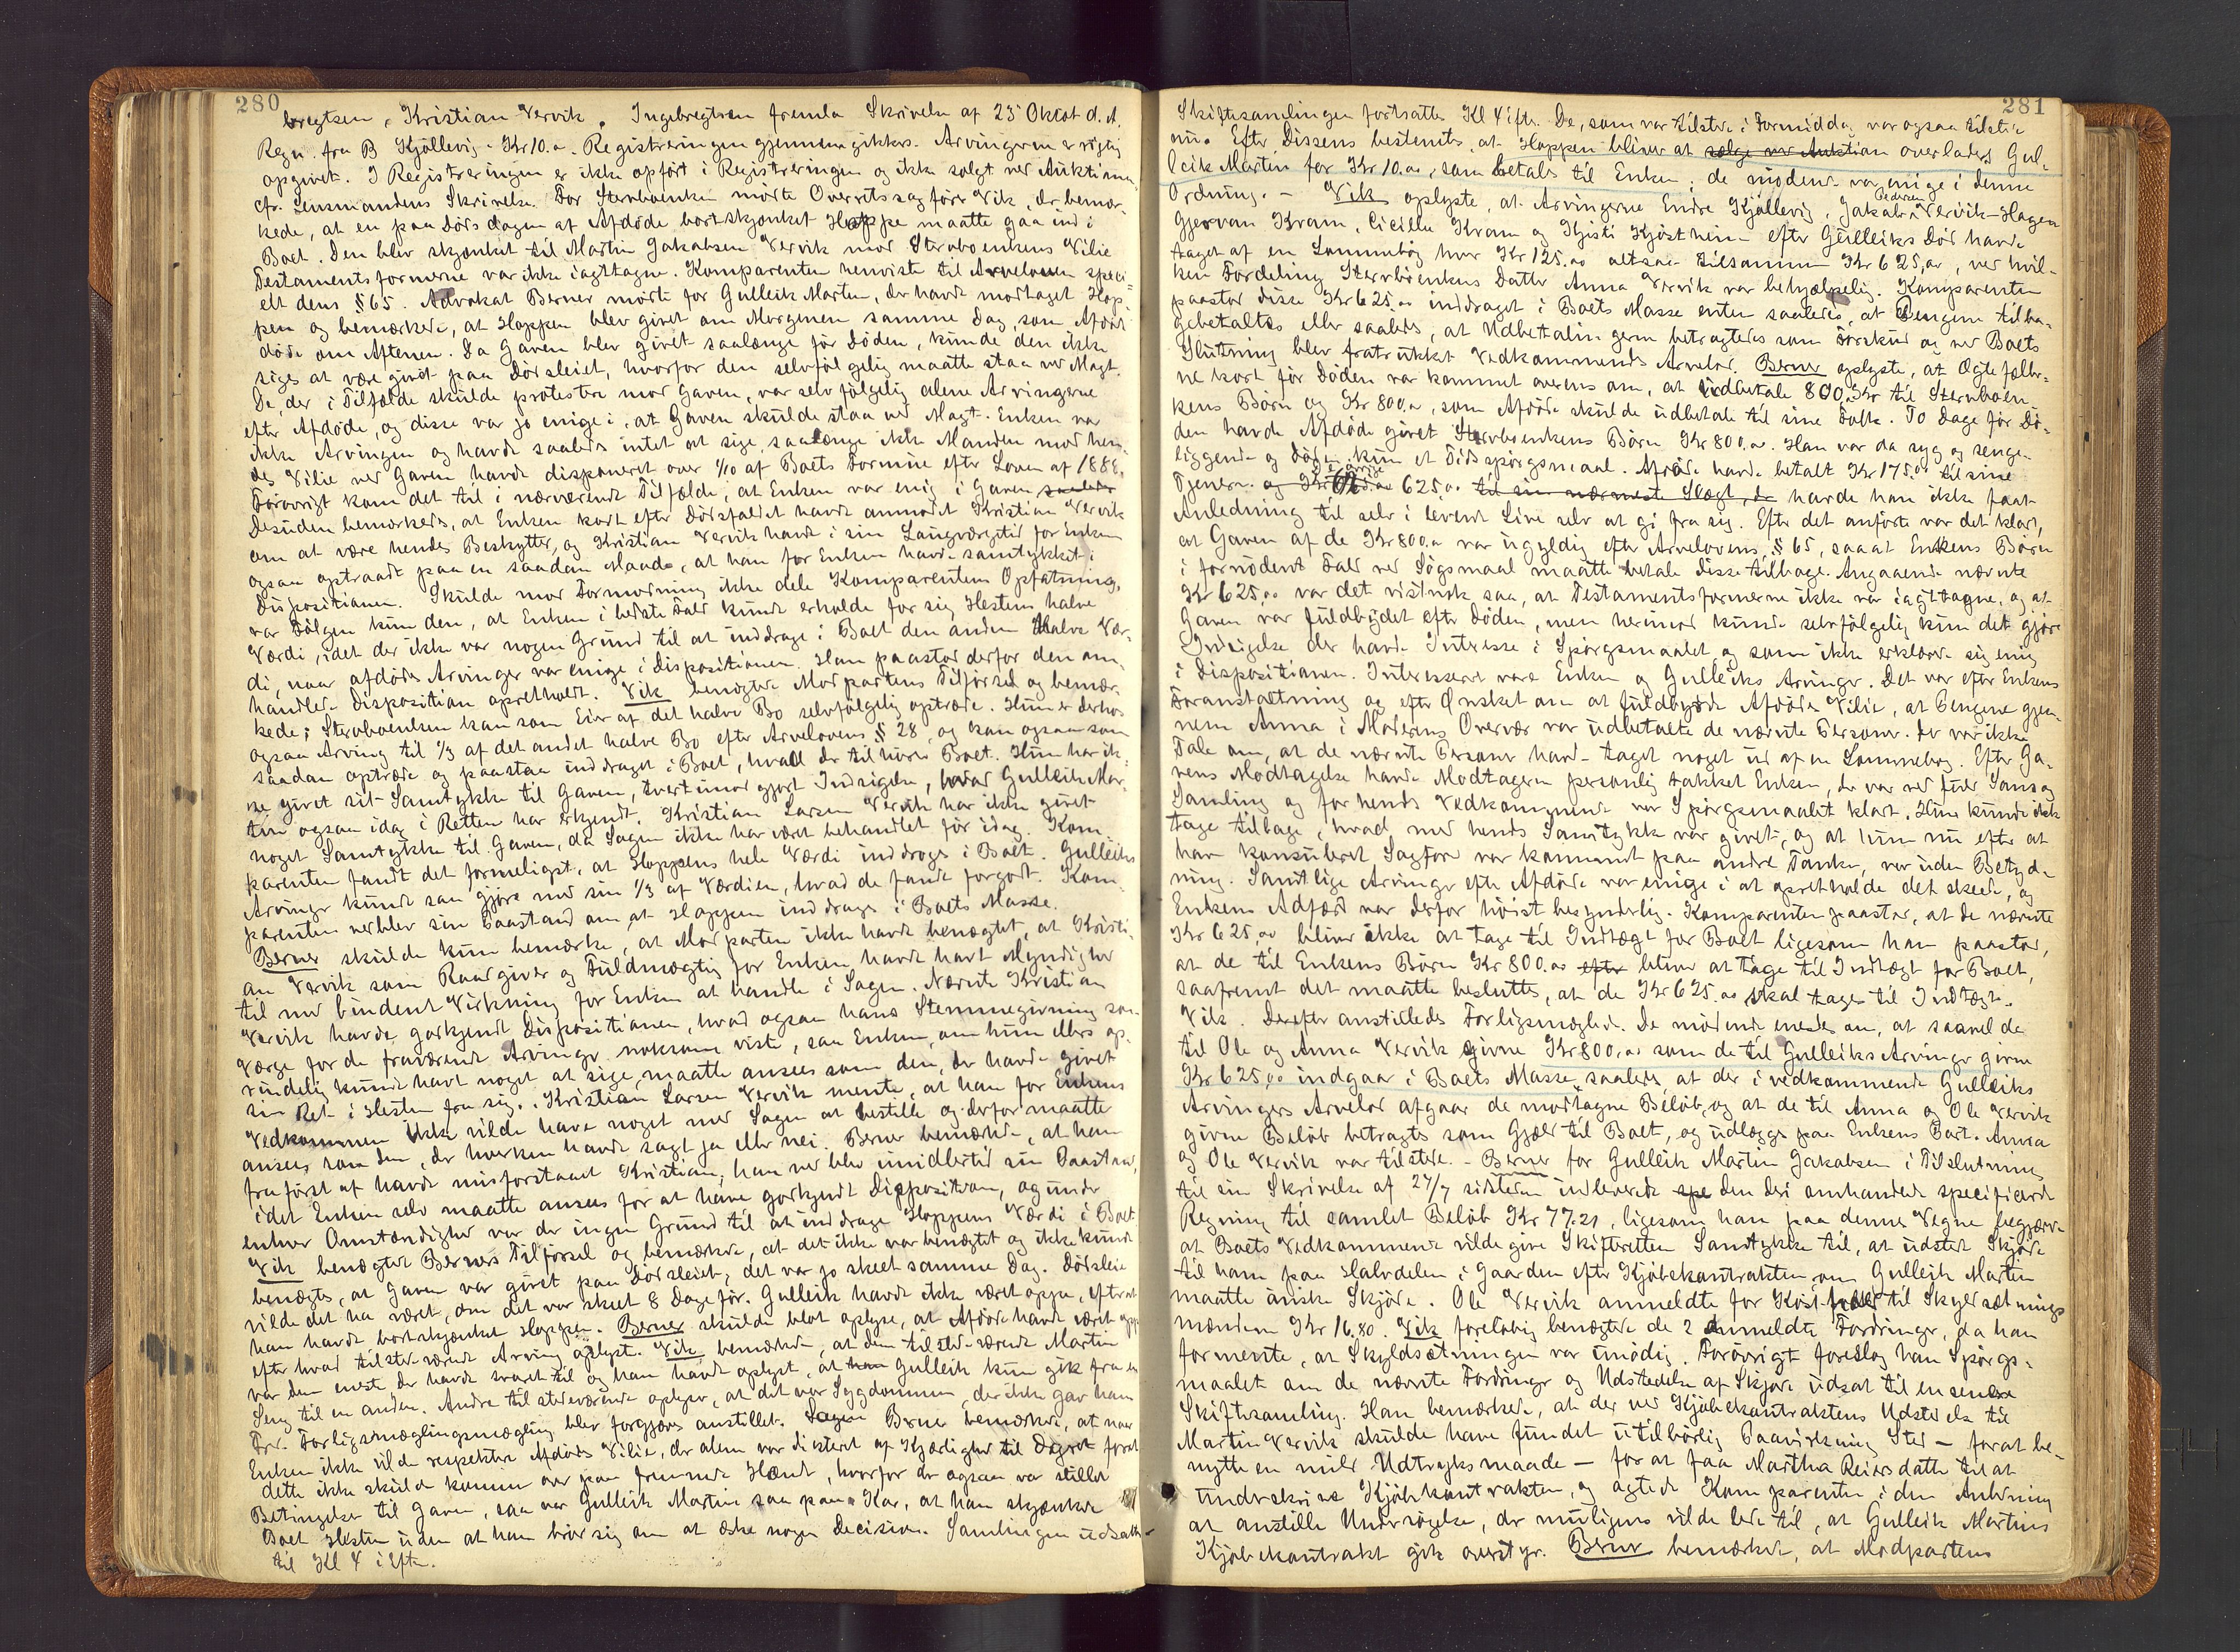 280
bregtsen, Kristian Vervik. Ingebregtsen fremla Skrivelse af 23 Oktob d. A.
Regn. fra B Kjöllevig - Kr 10.00. Registreringen gjennemgikkes. Arvingerne er rigtig
opgivet. I Registreringen er ikke opfört i Registreringen og ikke solgt ved Auktionen
cfr. Lensmandens Skrivelse. For Sterboenken mödte Overretssagförer Vik, der bemær-
kede, at en paa Dödsdagen af Afdöde bortskjænket Hoppe maatte gaa ind i
Boet. Den blev skjænket til Martin Jakobsen Vervik mod Sterboenkens Vilie
Testamentsformerne var ikke iagttagne. Komparenten henviste til Arveloven speci-
elt dens § 65. Advokat Berner mödte for Gulleik Martin, der havde modtaget Hop-
pen og bemærkede, at Hoppen blev givet om Morgenen samme Dag, som Afdöde
döde om Aftenen. Da Gaven blev givet saalænge för Döden, kunde den ikke
siges at være givet paa Dödsleiet, hvorfor den selvfölgelig maatte staa ved Magt.
De, der i Tilfælde skulde protestere mod Gaven, var selvfölgelig alene Arvingerne
efter Afdöde, og disse var jo enige i, at Gaven skulde staa ved Magt. Enken var
ikke Arvingen og havde saaledes intet at sige, saalænge ikke Manden mod hen-
des Vilie ved Gaven havde disponeret over 1/10 af Boets Formue efter Loven af 1888.
Forövrigt kom det til i nærværende Tilfælde, at Enken var enig i Gaven saaledes
Desuden bemærkedes, at Enken kort efter Dödsfaldet havde anmodet Kristian Vervik
om at være hendes Beskytter, og Kristian Vervik havde i sin Laugværgetid for Enken
ogsaa optraadt paa en saadan Maade, at han for Enken havde samtykket i
Dispositionen. Skulde mod Formodning ikke dele Komparentens Opfatning,
var Fölgen kun den, at Enken i bedste Fald kunde erholde for sig Hestens halve
Værdi, idet der ikke var nogen Grund til at inddrage i Boet den anden halve Vær-
di, naar afdödes Arvinger var enige i Dispositionen. Han paastod derfor den om-
handlede Disposition opretholdt. Vik benægtede Modpartens Tilförsel og bemær-
kede; Sterboenken kan som Eier af det halve Bo selvfölgelig optræde. Hun er derhos
ogsaa Arving til 1/3 af det andet halve Bo efter Arvelovens § 28, og kan ogsaa som
saadan optræde og paastaa inddraget i Boet, hvad der tilhörer Boet. Hun har ik-
ke givet sit Samtykke til Gaven, tvertimod gjort Indsigelse, hvad Gulleik Mar-
tin ogsaa idag i Retten har erkjendt. Kristian Larsen Vervik har ikke givet
noget Samtykke til Gaven, da Sagen ikke har været behandlet för idag. Kom-
parenten fandt det formeligst, at Hoppens hele Værdi inddroges i Boet. Gulleiks
Arvinger kunde saa gjöre med sin 1/3 af Værdien, hvad de fandt forgodt. Kom-
parenten vedblev sin Paastand om, at Hoppen inddrages i Boets Masse.
Berner skulde kun bemærke, at Modparten ikke havde benægtet, at Kristi-
an Vervik som Raadgiver og Fuldmægtig for Enken havde havt Myndighed
til med bindende Virkning for Enken at handle i Sagen. Nævnte Kristian
Vervik havde godkjendt Dispositionen, hvad ogsaa hans Stemmegivning som
Værge for de fraværende Arvinger noksom viste, saa Enken, om hun ellers op-
rindelig kunde havt noget at sige, maatte ansees som den, der havde givet
sin Ret i Hesten fra sig. Kristian Larsen Vervik mente, at han for Enkens
Vedkommen ikke vilde have noget med Sagen at bestille og derfor maatte
ansees som den, der hverken havde sagt ja eller nei. Berner bemærkede, at han
fra först af havde misforstaaet Kristian; han vedblev imidlertid sin Paastand,
idet Enken selv maatte ansees for at have godkjendt Dispositionen, og under
enhver Omstændighed var der ingen Grund til at inddrage Hoppens Værdi i Boet
Vik benægtede Berners Tilförsel og bemærkede, at det ikke var benægtet og ikke kunde
benægtes, at Gaven var givet paa Dödsleiet, det var jo skeet samme Dag. Dödsleie
vilde det ha været, om det var skeet 8 Dage för. Gulleik havde ikke været oppe, efterat
han havde bortskjænket Hoppen. Berner skulde blot oplyse, at Afdöde havde været oppe
efter hvad tilstedeværende Arving oplyst. Vik bemærkede, at den tilstedeværende Martin
var den eneste, der havde svaret til og han havde oplyst, at han Gulleik kun gik fra en
Seng til en anden. Andre tilstedeværende oplyser, at det var Sygdommen, der ikke gav ham
Fred. Forligsmæglingsmægling blev forgjæves anstillet. Sagen Berner bemærkede, at naar
Enken ikke vilde respektere Afdödes Vilie, der alene var dikteret af Kjærlighed til Dyret forat
dette ikke skulde komme over paa fremmede Hænder, hvorfor der ogsaa var stillet
Betingelser til Gaven, saa var Gulleik Martin saa pas Kar, at han skjænkede
Boet Hesten uden at han bröd sig om at æske nogen Decision. Samlingen udsattes
til Kl 4 i Eftm.
281
Skiftesamlingen fortsattes Kl 4 iefter. De, som var tilstede i Formiddag var ogsaa tilstede
nu. Efter Dissens bestemtes, at Hoppen bliver at sælge ved Auktion overlades Gul-
leik Martin for Kr 10.00, som betales til Enken; de mödende var enige i denne
Ordning. - Vik oplyste, at Arvingerne Endre Kjöllevig, Jakob Pedersen Vervik-Hagen
Gjervan Kvam, Cicilie Kvam og Kjisti Kjöstheim efter Gulleiks Död havde
taget af en Lommebog hver Kr 125.00 altsaa tilsammen Kr 625,00, ved hvil-
ken Fordeling Sterboenkens Datter Anna Vervik var behjælpelig. Komparenten
paastod disse Kr 625.00 inddraget i Boets Masse enten saaledes, at Pengene tilba-
gebetaltes eller saaledes, at Udbetalingerne betragtedes som Forskud og ved Boets
Slutning blev fratrukket Vedkommendes Arvelod. Berner oplyste, at Ægtefæller-
ne kort för Döden var kommet overens om, at udbetale 800.00 Kr til Sterboen-
kens Börn og Kr 800.00, som Afdöde skulde udbetale til sine Folk. To Dage för Dö-
den havde Afdöde givet Sterboenkens Börn Kr 800.00. Han var da syg og senge-
liggende og Döden kun et Tidsspörgsmaal. Afdöde havde betalt Kr 175.00 til sine
Tjenere. og Kr 625.00 De övrige 625,00 til sin nærmeste Slægt, de havde han ikke faat
Anledning til selv i levende Live selv at gi fra sig. Efter det anförte var det klart,
at Gaven af de Kr 800.00 var ugyldig efter Arvelovens § 65, saaat Enkens Börn
i fornödent Fald ved Sögsmaal maatte betale disse tilbage. Angaaende nævnte
Kr 625,00 var det vistnok saa, at Testamentsformerne ikke var iagttagne, og at
Gaven var fuldbyrdet efter Döden, men herimod kunde selvfölgelig kun det gjöre
Indsigelse der havde Interesse i Spörgsmaalet og som ikke erklærede sig enig
i Dispositionen. Interesseret vare Enken og Gulleiks Arvinger. Det var efter Enkens
Foranstaltning og efter Ønsket om at fuldbyrde Afdödes Vilie, at Pengene gjen-
nem Anna i Moderens Overvær var udbetalte de nævnte Personer. Der var ikke
Tale om, at de nævnte Personer havde taget noget ud af en Lommebog. Efter Ga-
vens Modtagelse havde Modtageren personlig takket Enken, der var ved fuld Sans og
Samling og for hendes Vedkommende var Spörgsmaalet klart. Hun kunde ikke
tage tilbage, hvad med hendes Samtykke var givet, og at hun nu efter at
have konsuleret Sagförer var kommet paa andre Tanker, var uden Betyd-
ning. Samtlige Arvinger efter Afdöde var enige i at opretholde det skeede, og
Enkens Adfærd var derfor höist besynderlig. Komparenten paastod, at de nævnte
Kr 625,00 bliver ikke at tage til Indtægt for Boet ligesom han paastod,
at de til Enkens Börn Kr 800.00 efter bliver at tage til Indtægt for Boet,
saafremt det maatte besluttes, at de Kr 625.00 skal tages til Indtægt.
Vik. Derefter anstilledes Forligsmægled. De mödende enedes om, at saavel de
til Ole og Anna Vervik givne Kr 800,00 som de til Gulleiks Arvinger givne
Kr 625,00 indgaar i Boets Masse, saaledes at der i vedkommende Gulleiks
Arvingers Arvelod afgaar de modtagne Belöb, og at de til Anna og Ole Vervik
givne Belöb betragtes som Gjæld til Boet, og udlægges paa Enkens Part. Anna
og Ole Vervik var tilstede. - Berner for Gulleik Martin Jakobsen i Tilslutning
til sin Skrivelse af 27/7 sidstleden indleverede spe den deri omhandlede specificerede
Regning til samlet Belöb Kr 77.21, ligesom han paa dennes Vegne begjærede
at Boets Vedkommende vilde give Skifteretten Samtykke til, at udstede Skjöde
til ham paa Halvdelen i Gaarden efter Kjöbekontrakten, om Gulleik Martin
maatte önske Skjöde. Ole Vervik anmeldte for Kosthold til Skyldsætnings
mændene Kr 16.80. Vik foreløbig benægtede de 2 anmeldte Fordringer, da han
formente, at Skyldsætningen var unödig. Forövrigt foreslog han Spörgs-
maalet om de nævnte Fordringer og Udstedelse af Skjöde udsat til en senere
Skiftesamling. Han bemærkede, at der ved Kjöbekontraktens Udstedelse til
Martin Vervik skulde have fundet utilbörlig Paavirkning Sted - forat be-
nytte en mild Udtryksmaade - for at faa Martha Reiersdatter til at
underskrive Kjöbekontrakten, og agtede Komparenten i den Anledning
at anstille Undersögelse, der muligens vilde lede til, at Gulleik Martins
Kjöbekontrakt gik overstyr. Berner bemærkede, at Modpartens